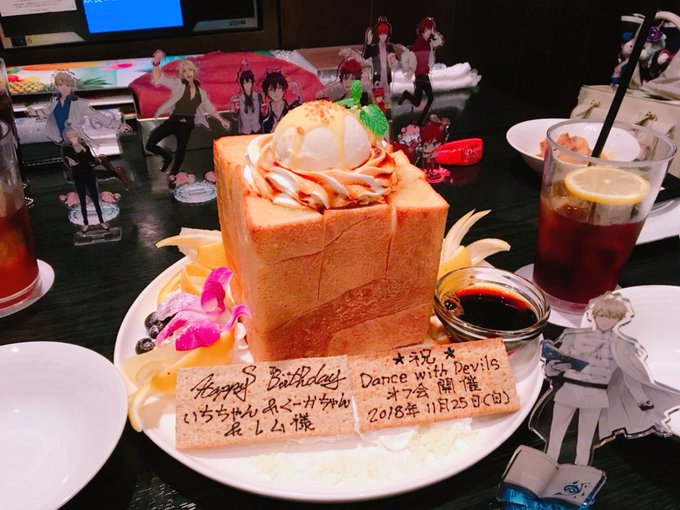 Happy Birthday
いちちゃん&くーかちゃん
&レム様
★祝★
Dance with Devils
オフ会開催
2018年11月25日(日)